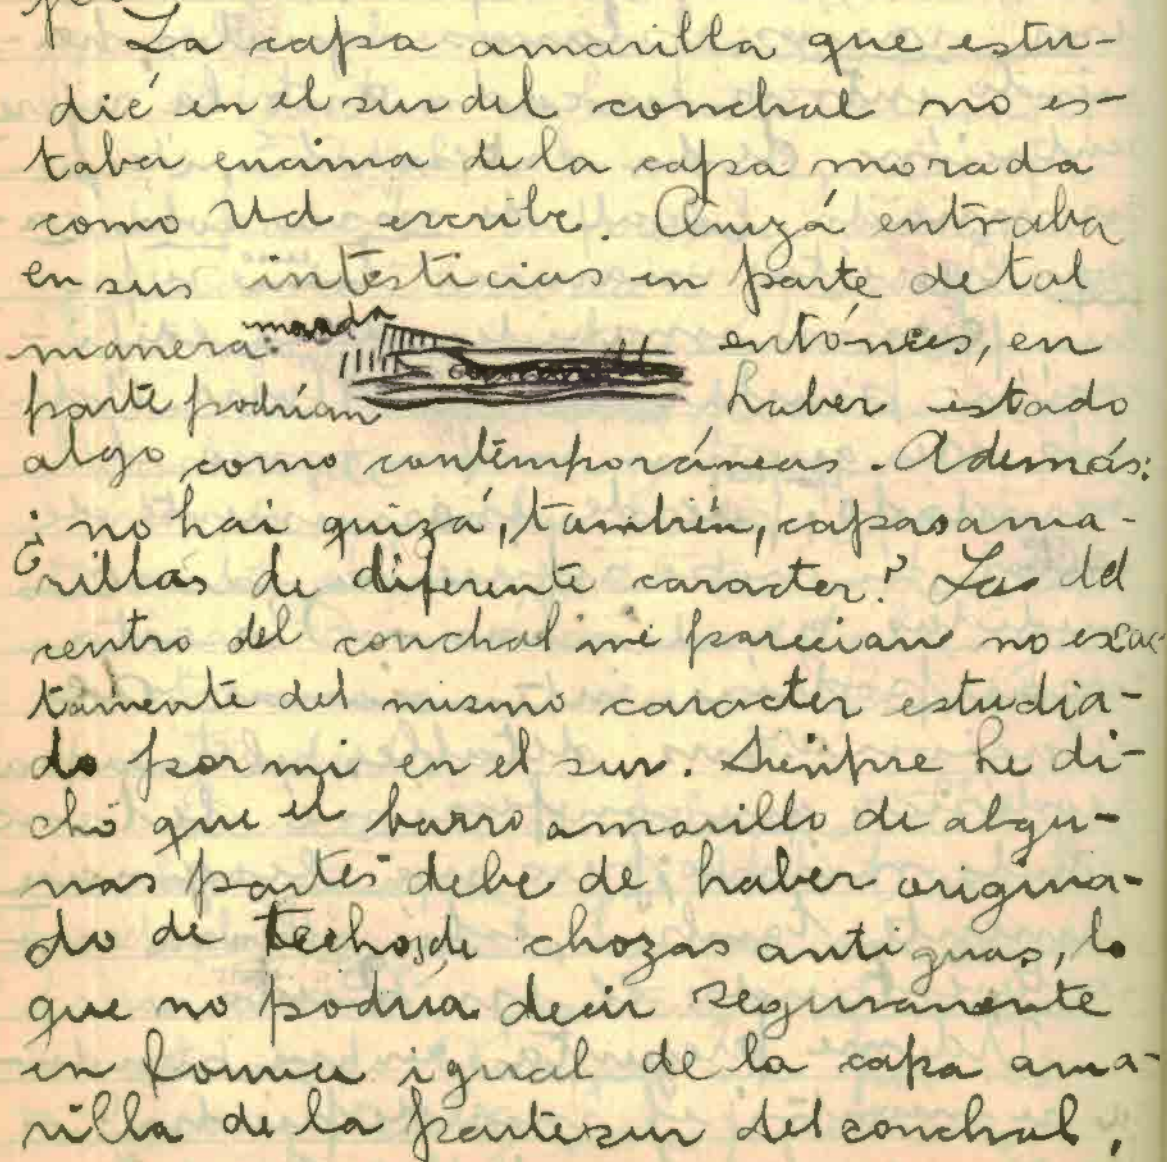 La capa amarilla que estu-
dié en el sur del conchal no es-
taba encima de la capa morada
como Ud escribe. Quizá entraba
en sus intesticias en parte de tal
manera: morada entónces, en
parte podrían haber estado
algo como contemporáneas. Además:
¿no hai quizá, también, capas ama-
rillas de diferente caracter? Las del
centro del conchal me parecian no exac-
tamente del mismo caracter estudia-
do por mi en el sur. Siempre he di-
cho que el barro amarillo de algu-
nas partes debe de haber origina-
do de techos de chozas antiguas, lo
que no podría decir seguramente
en forma igual de la capa ama-
rilla de la parte sur del conchal.